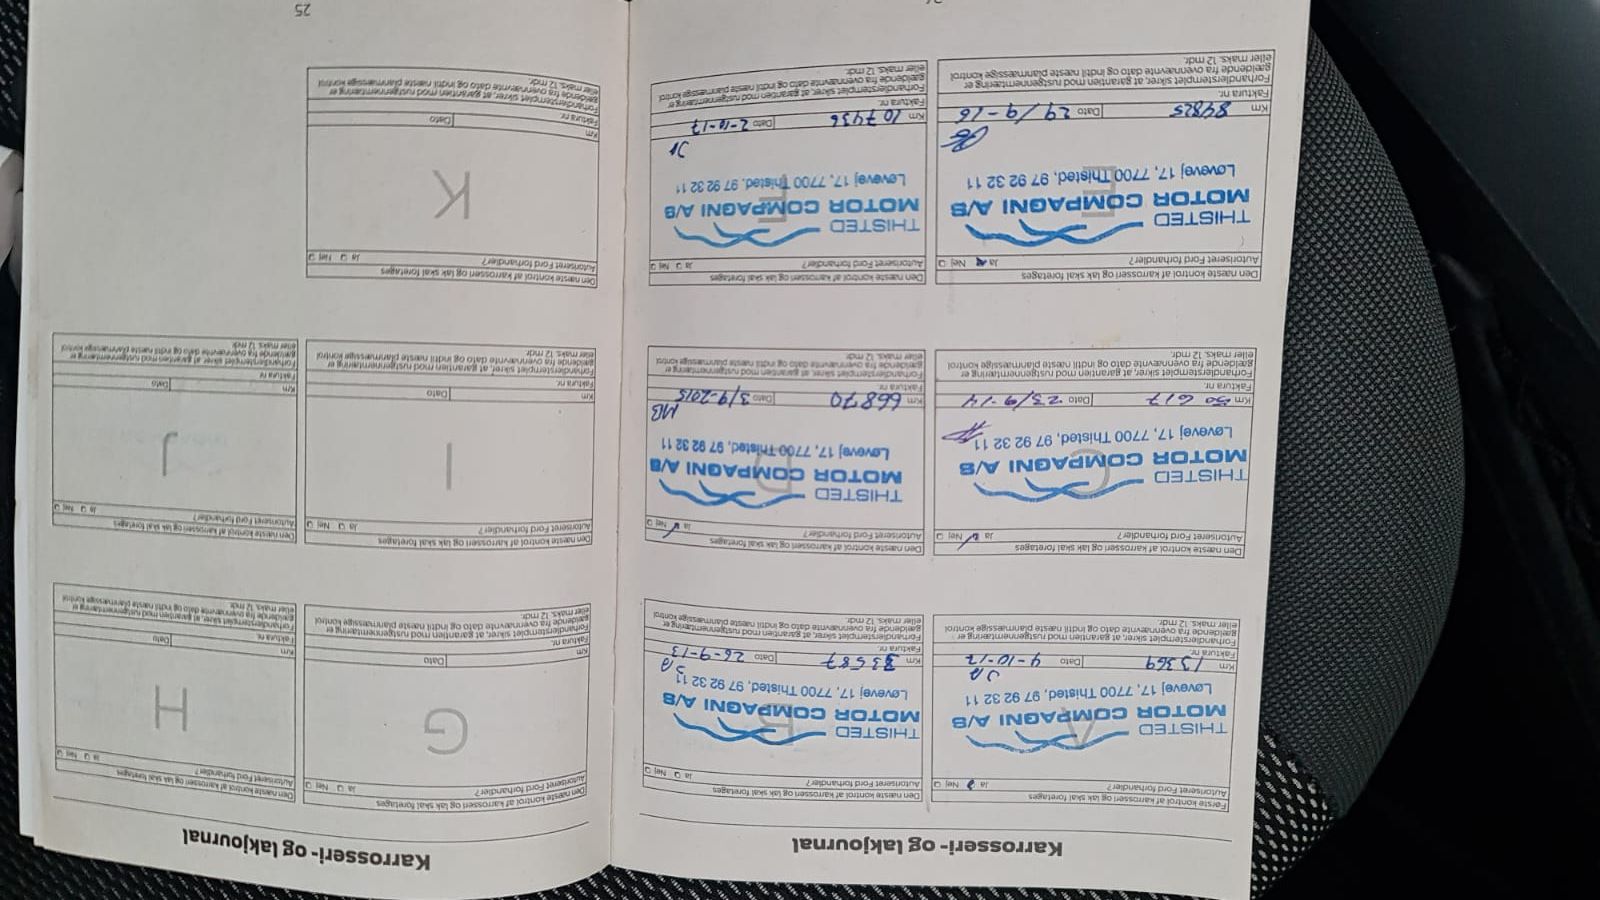 Karrosseri- og lakjournal
Første kontrol af karrosseri og lak skal foretages
Autoriseret Ford forhandler? Ja Nej
A
THISTED
MOTOR COMPAGNI A/S
Løvevej 17, 7700 Thisted, 97 92 32 11
Km 13369 Dato 4-10-12
Faktura nr.
Forhandlerstemplet sikrer, at garantien mod rustgennemtæring er
gældende fra ovennævnte dato og indtil næste planmæssige kontrol
eller maks. 12 mdr.
Den næste kontrol af karrosseri og lak skal foretages
Autoriseret Ford forhandler? Ja Nej
B
THISTED
MOTOR COMPAGNI A/S
Løvevej 17, 7700 Thisted, 97 92 32 11
Km 33587 Dato 26-9-13
Faktura nr.
Forhandlerstemplet sikrer, at garantien mod rustgennemtæring er
gældende fra ovennævnte dato og indtil næste planmæssige kontrol
eller maks. 12 mdr.
Den næste kontrol af karrosseri og lak skal foretages
Autoriseret Ford forhandler? Ja Nej
C
THISTED
MOTOR COMPAGNI A/S
Løvevej 17, 7700 Thisted, 97 92 32 11
Km 50 617 Dato 23/9-14
Faktura nr.
Forhandlerstemplet sikrer, at garantien mod rustgennemtæring er
gældende fra ovennævnte dato og indtil næste planmæssige kontrol
eller maks. 12 mdr.
Den næste kontrol af karrosseri og lak skal foretages
Autoriseret Ford forhandler? Ja Nej
D
THISTED
MOTOR COMPAGNI A/S
Løvevej 17, 7700 Thisted, 97 92 32 11
MB
Km 66870 Dato 3/9-2015
Faktura nr.
Forhandlerstemplet sikrer, at garantien mod rustgennemtæring er
gældende fra ovennævnte dato og indtil næste planmæssige kontrol
eller maks. 12 mdr.
Den næste kontrol af karrosseri og lak skal foretages
Autoriseret Ford forhandler? Ja Nej
E
THISTED
MOTOR COMPAGNI A/S
Løvevej 17, 7700 Thisted, 97 92 32 11
Km 84825 Dato 29/9-16
Faktura nr.
Forhandlerstemplet sikrer, at garantien mod rustgennemtæring er
gældende fra ovennævnte dato og indtil næste planmæssige kontrol
eller maks. 12 mdr.
Den næste kontrol af karrosseri og lak skal foretages
Autoriseret Ford forhandler? Ja Nej
F
THISTED
MOTOR COMPAGNI A/S
Løvevej 17, 7700 Thisted, 97 92 32 11
Km 107436 Dato 2-10-17
Faktura nr.
Forhandlerstemplet sikrer, at garantien mod rustgennemtæring er
gældende fra ovennævnte dato og indtil næste planmæssige kontrol
eller maks. 12 mdr.
Karrosseri- og lakjournal
Den næste kontrol af karrosseri og lak skal foretages
Autoriseret Ford forhandler? Ja Nej
G
Km Dato
Faktura nr.
Forhandlerstemplet sikrer, at garantien mod rustgennemtæring er
gældende fra ovennævnte dato og indtil næste planmæssige kontrol
eller maks. 12 mdr.
Den næste kontrol af karrosseri og lak skal foretages
Autoriseret Ford forhandler? Ja Nej
H
Km Dato
Faktura nr.
Forhandlerstemplet sikrer, at garantien mod rustgennemtæring er
gældende fra ovennævnte dato og indtil næste planmæssige kontrol
eller maks. 12 mdr.
Den næste kontrol af karrosseri og lak skal foretages
Autoriseret Ford forhandler? Ja Nej
I
Km Dato
Faktura nr.
Forhandlerstemplet sikrer, at garantien mod rustgennemtæring er
gældende fra ovennævnte dato og indtil næste planmæssige kontrol
eller maks. 12 mdr.
Den næste kontrol af karrosseri og lak skal foretages
Autoriseret Ford forhandler? Ja Nej
J
Km Dato
Faktura nr.
Forhandlerstemplet sikrer, at garantien mod rustgennemtæring er
gældende fra ovennævnte dato og indtil næste planmæssige kontrol
eller maks. 12 mdr.
Den næste kontrol af karrosseri og lak skal foretages
Autoriseret Ford forhandler? Ja Nej
K
Km Dato
Faktura nr.
Forhandlerstemplet sikrer, at garantien mod rustgennemtæring er
gældende fra ovennævnte dato og indtil næste planmæssige kontrol
eller maks. 12 mdr.
25